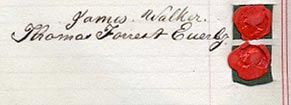 James Walker.
Thomas Forrest Euerby.